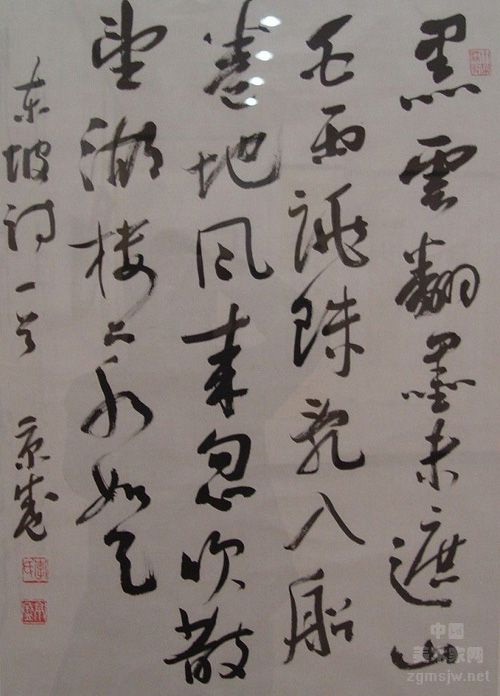 黑雲翻墨未遮山
白雨跳珠乱入船
卷地风来忽吹散
望湖楼下水如天
东坡诗一首
中国
美术家网
zgmsjw.net